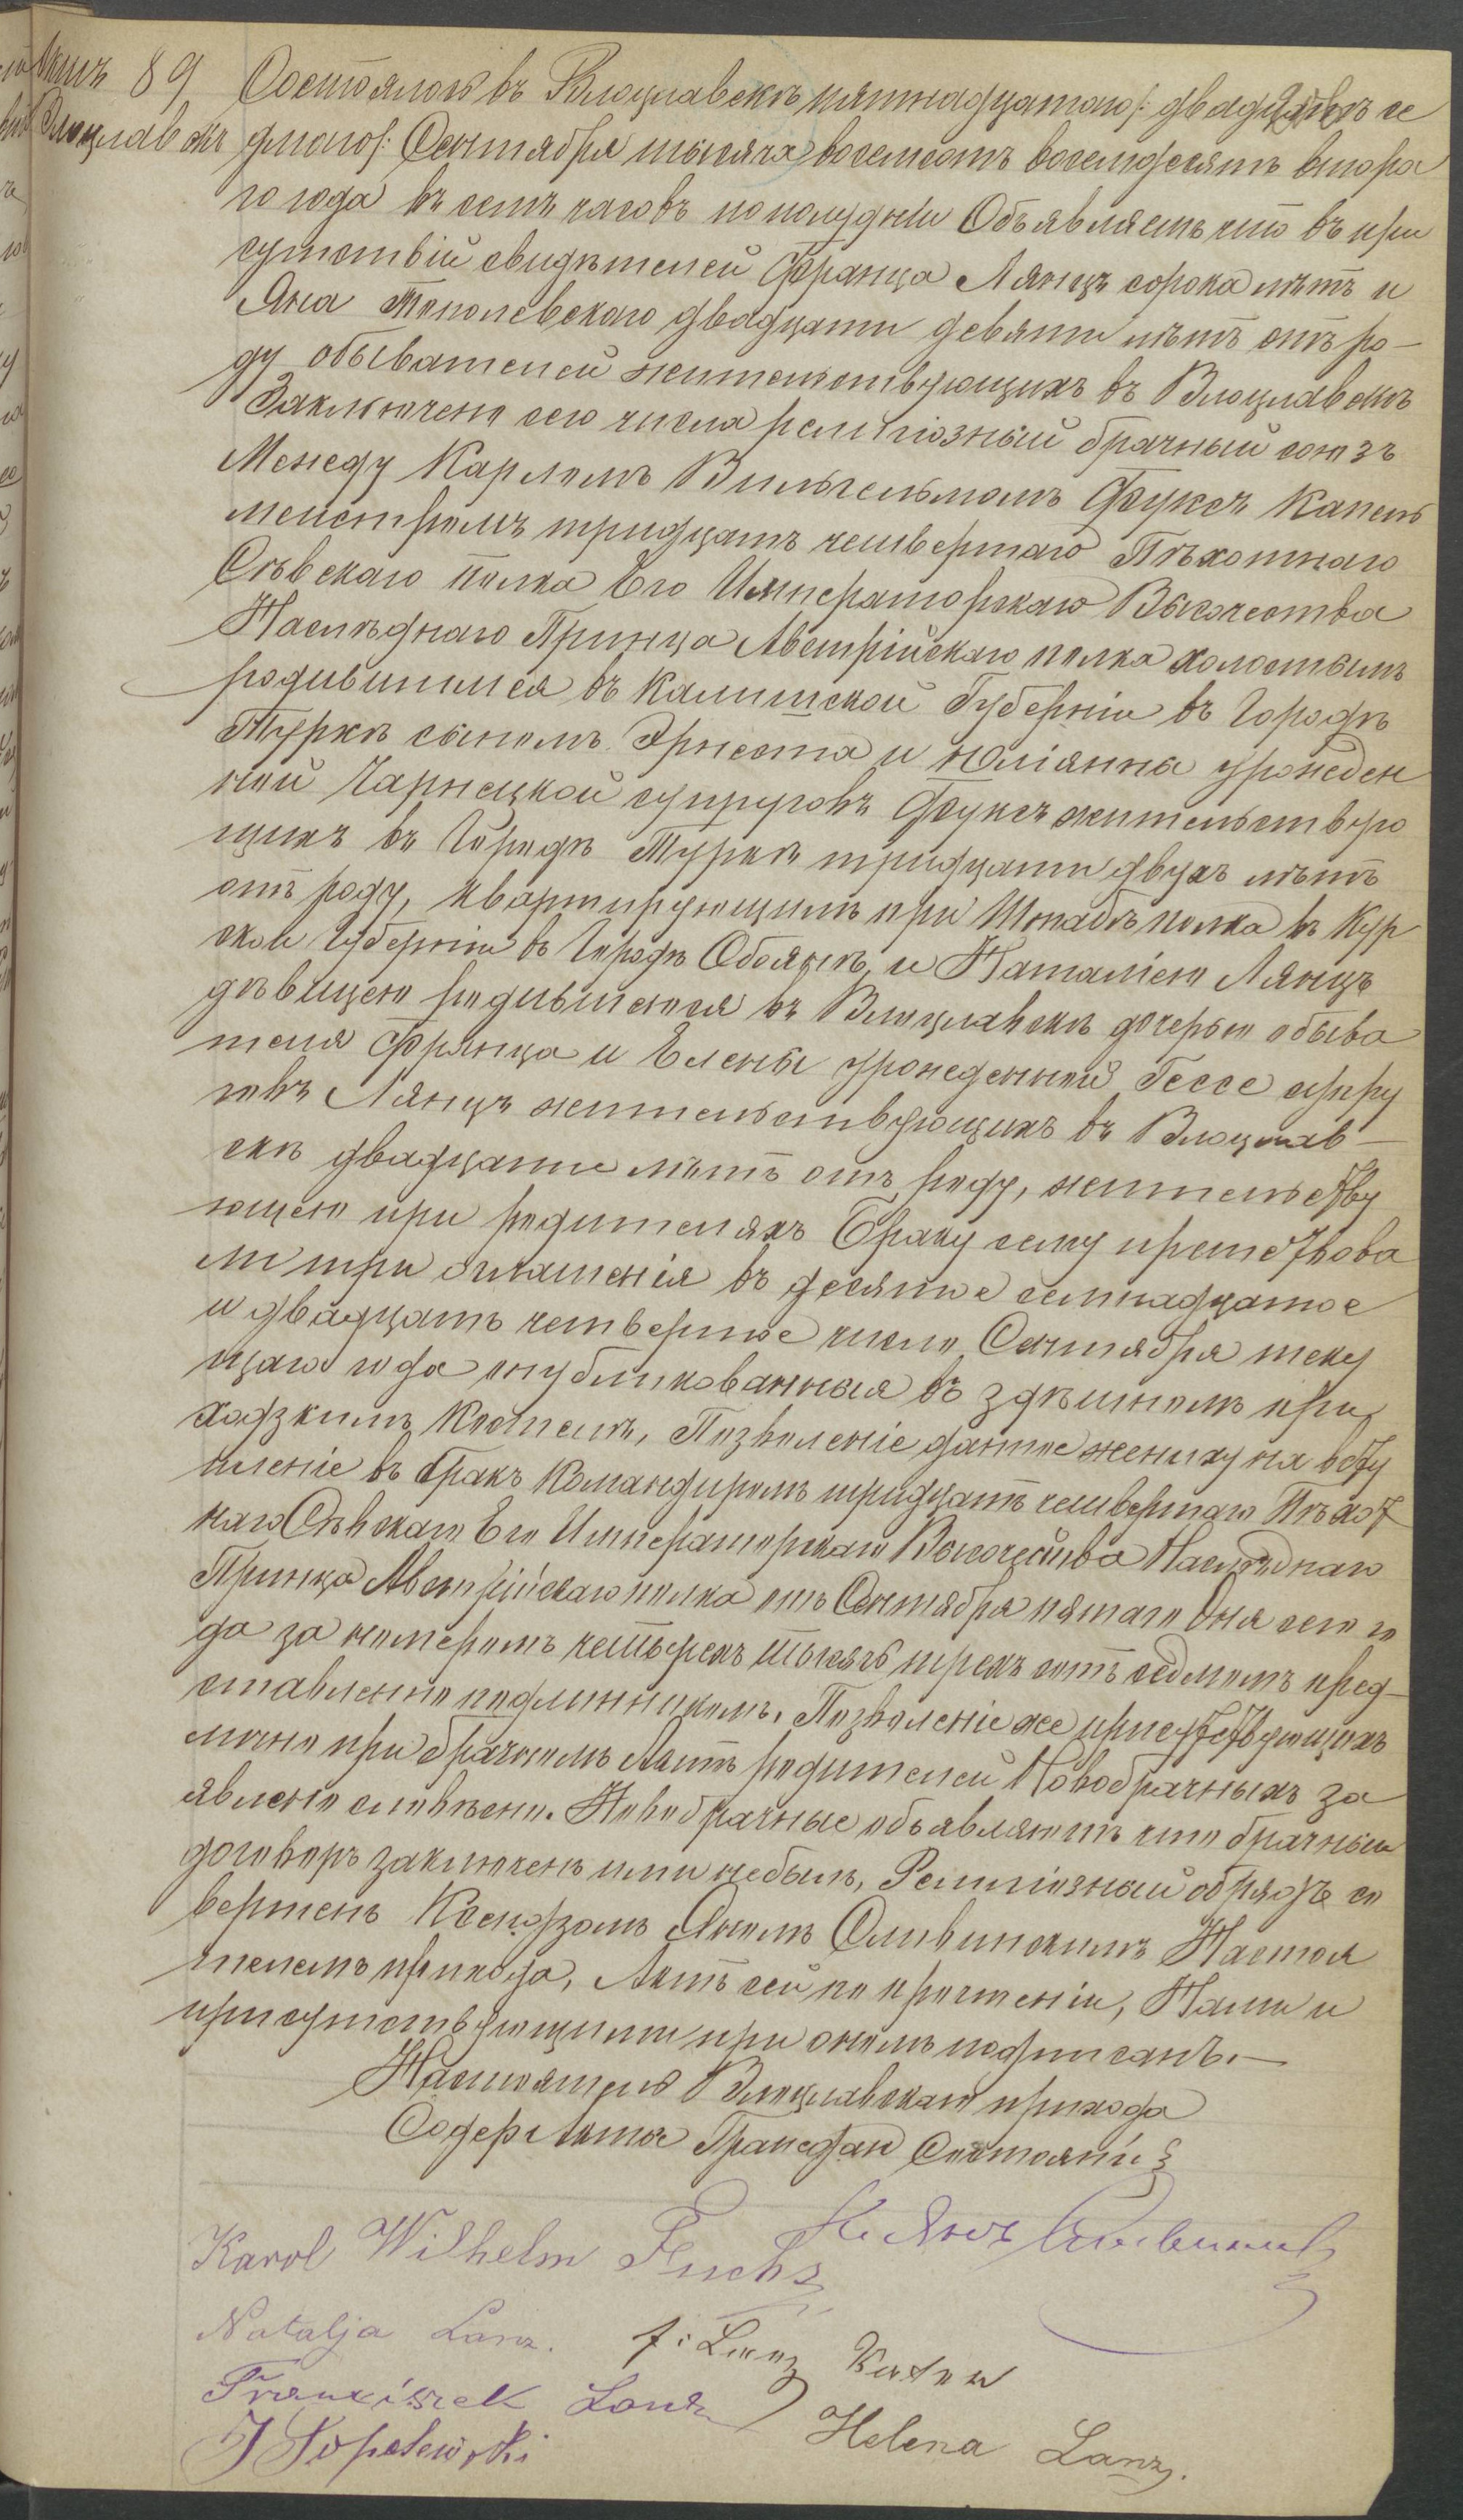 Актъ 89 Состоялось въ Влоцлавскѣ пятнадцатаго /: двадцать се
Влоцлавскъ дмаго /: Сентября тысяча восемсотъ восемдесятъ втора
го года въ семь часовъ пополудни Объявляемъ что въ при
сутствіи свидѣтелей Франца Лянцъ сорока лѣтъ и
Яна Тополевскаго двадцати девяти лѣтъ отъ ро–
ду обывателей жительствующихъ въ Влоцлавскѣ
Заключенъ сего числа религіозный брачный союзъ
Между Карломъ Вильгельмомъ Фуксъ Капель
мейстромъ тридцать четвертаго Пѣхотнаго
Сѣвскаго полка Его Императорскаго Высочества
Наслѣднаго Принца Австрійскаго полка холостымъ
родившимся въ Калишской Губерніи въ Городѣ
Туркѣ сыномъ Эрнеста и Юліянна урожден
ной Чарнецкой супруговъ Фуксъ жительствую
щихъ въ Городѣ Туркѣ тридцати двухъ лѣтъ
отъ роду, квартирующимъ при Штабѣ полка въ Кур
ской Губерніи въ Городѣ Обоянѣ, и Наталіею Лянцъ
дѣвицею родившеюся въ Влоцлавскѣ дочерью обыва
теля Франца и Елены урожденной Гессе супру
говъ Лянцъ жительствующихъ въ Влоцлав–
скѣ двадцати лѣтъ отъ роду, жительству
ющею при родителяхъ Браку сему предшествова
ли три оглашенія въ десятое семнадцатое
и двадцать четвертое число Сентября теку
щаго года опубликованныя въ здѣшномъ при
ходзкимъ Костелѣ, Позволеніе данное жениху на всту
пленіе въ бракъ Командиромъ тридцать четвертаго Пѣхот
наго Сѣвскаго Его Императорскаго Высочества Наслѣднаго
Принца Австрійскаго полка отъ Сентября пятаго дня сего го
да за номеромъ четырехъ тысячъ трехъ сотъ седмомъ пред–
ставленно подлинникомъ. Позволеніе же присутствующихъ
лично при брачномъ Актѣ родителей Новобрачныхъ за
явлено словѣсно. Новобрачные объявляютъ что брачный
договоръ заключенъ ими небылъ, Религіозный обрядъ со
вершенъ Ксендзомъ Яномъ Сливинскимъ Настоя
телемъ прихода, Актъ сей по прочтеніи, Нами и
присутствующими при ономъ подписанъ.—
Настоятель Влоцлавскаго прихода
Содерж Акты Граждан Состоянія
Karol Wilhelm Fuchs К. Янъ Сливинскій
Natalja Lanz. F: Lanz
Franciszek Lanz
J Topolewski Helena Lanz.